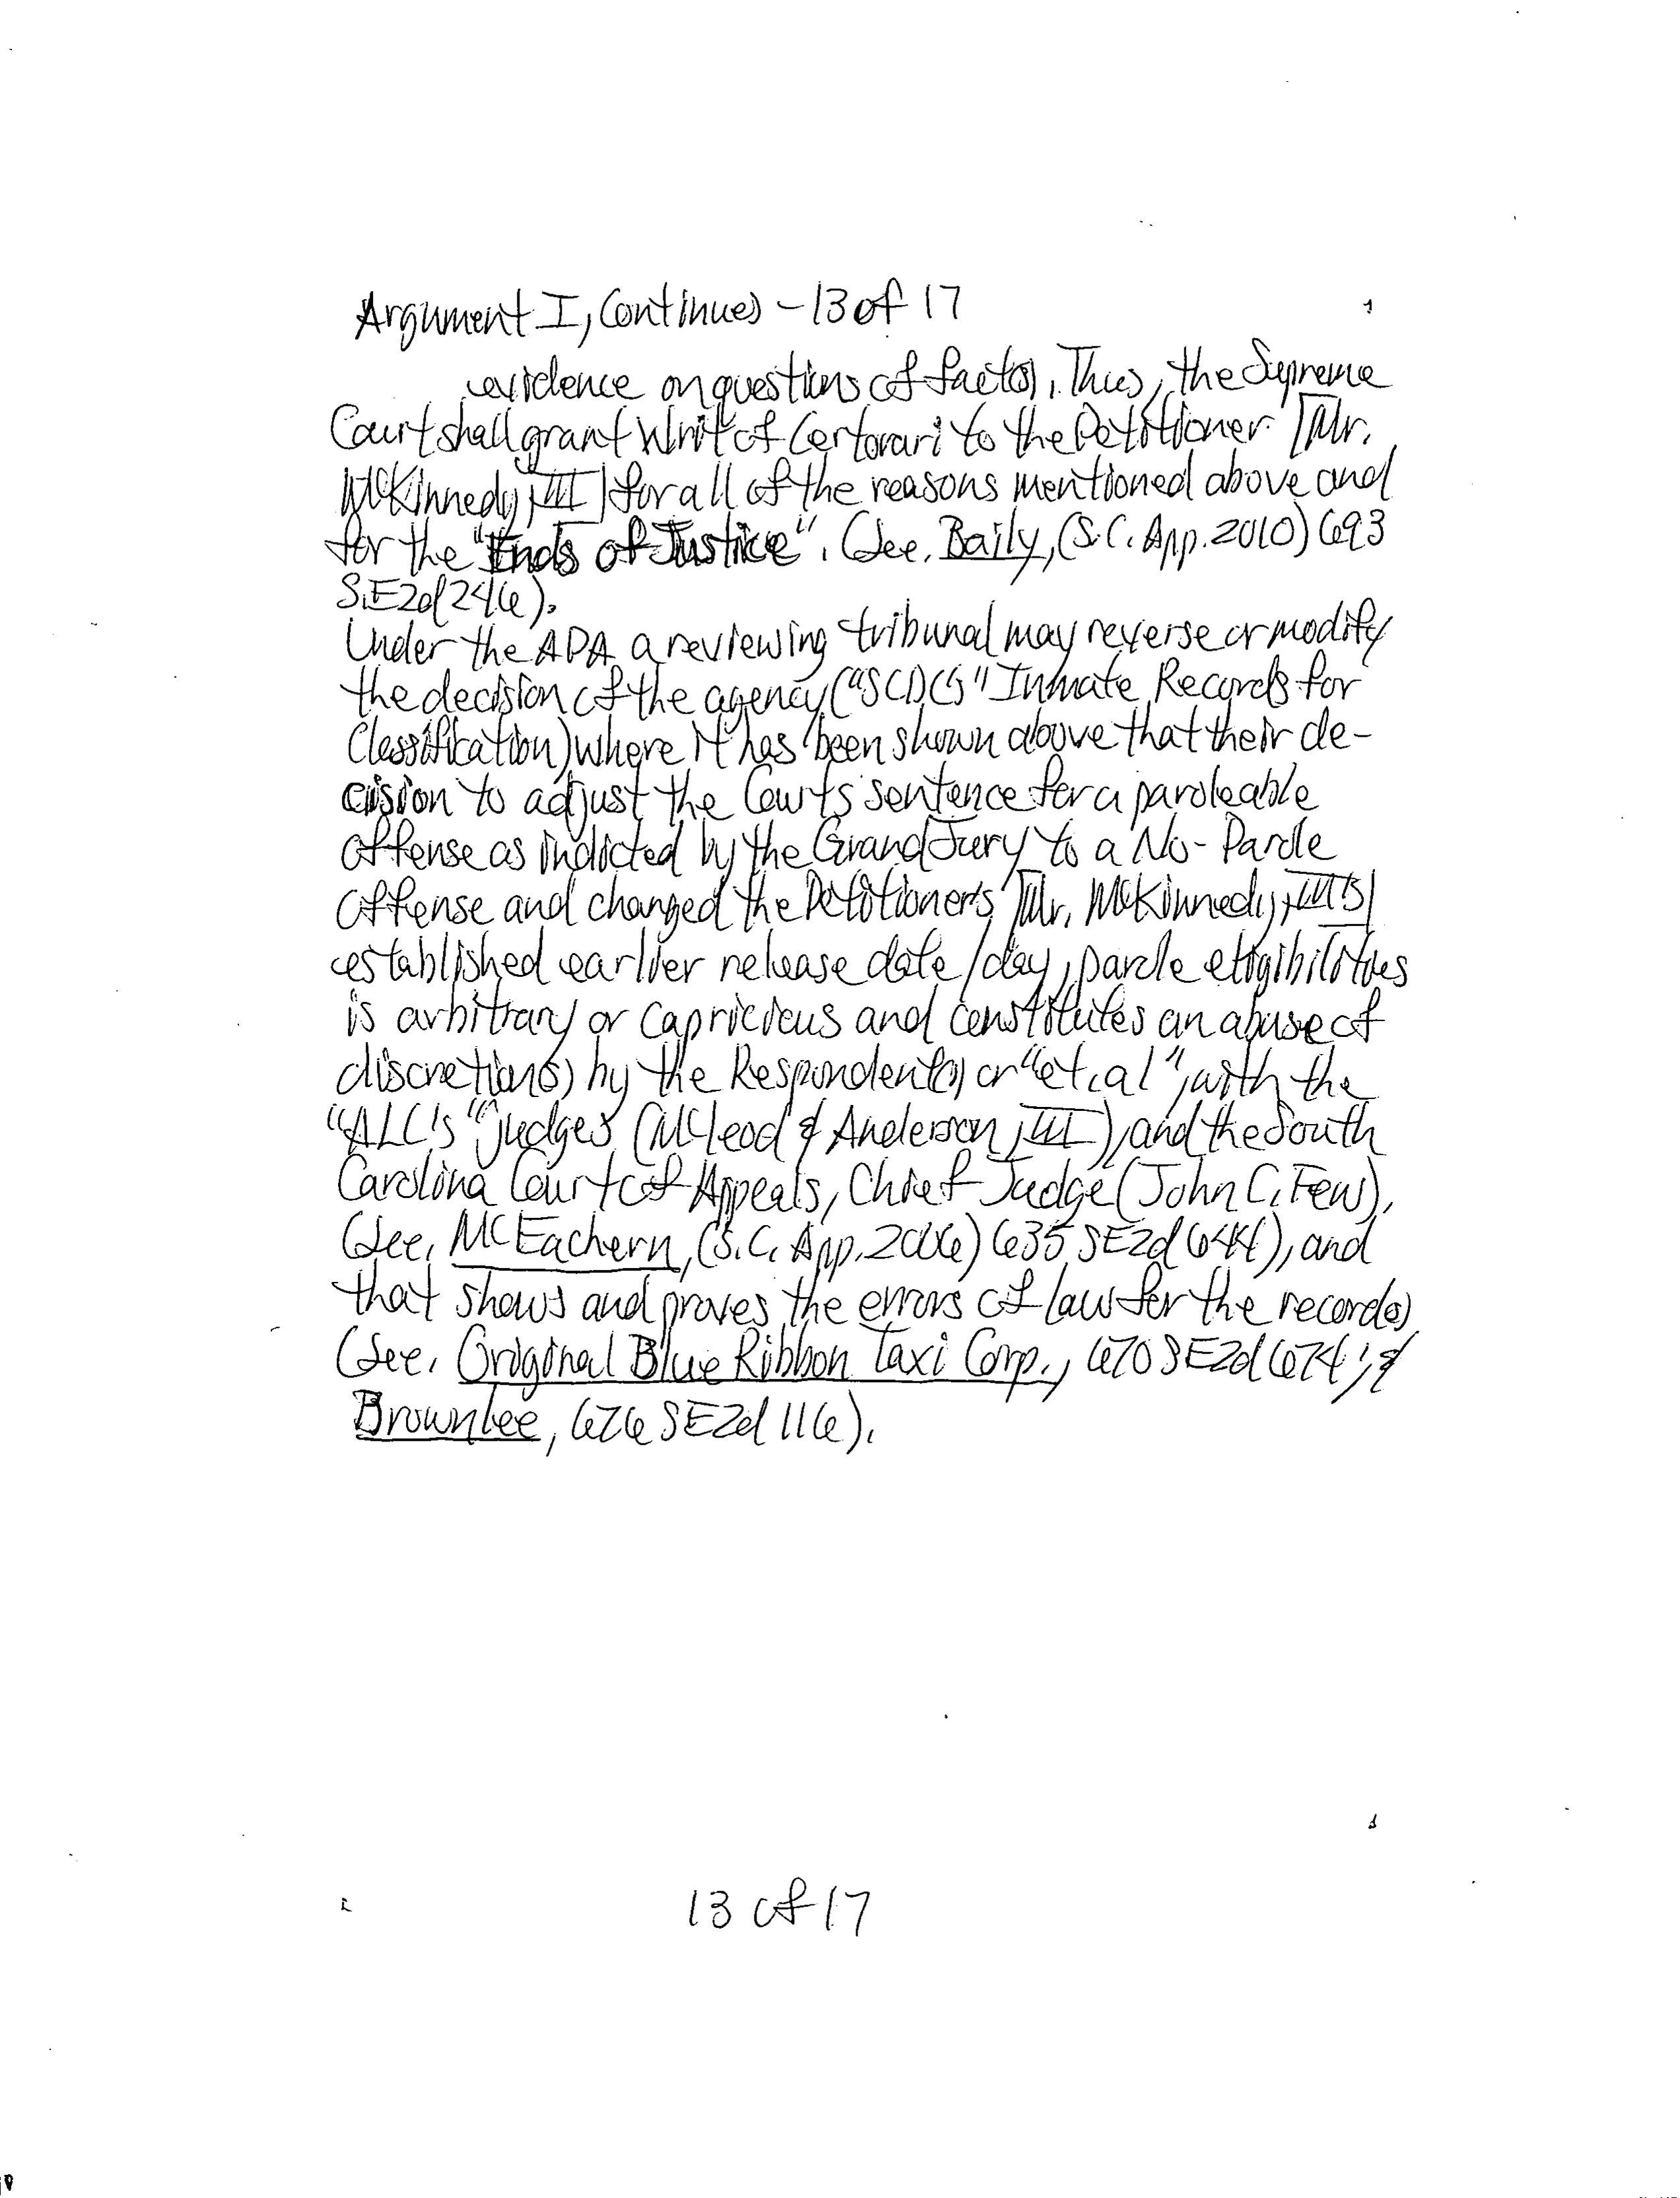 Argument I, Continue(s) - 13 of 17
evidence on questions of fact(s). Thus, the Supreme
Court shall grant Writ of Certorari to the Petitioner [Mr.
McKinnedy, III] for all of the reasons mentioned above and
for the "Ends of Justice". (See, Baily, (S.C. App. 2010) 693
S.E2d 246).
Under the APA a reviewing tribunal may reverse or modify
the decision of the agency ("SCDC's" Inmate Records for
Classification) where it has been shown above that their de-
cision to adjust the Courts sentence for a paroleable
offense as indicted by the Grand Jury to a No-Parole
offense and changed the Petitioner's [Mr. McKinnedy, III's]
established earlier release date/day, parole eligibilities
is arbitrary or capricious and constitutes an abuse of
discretion(s) by the Respondent(s) or "et.al", with the
"ALC's" judges (McLeod & Anderson, III), and the South
Carolina Court of Appeals, Chief Judge (John C. Few).
(See, McEachern, (S.C. App. 2006) 635 SE2d 644), and
that shows and proves the errors of law for the record(s)
(See, Original Blue Ribbon Taxi Corp., 670 SE2d 674; &
Brownlee, 676 SE2d 116).
13 of 17